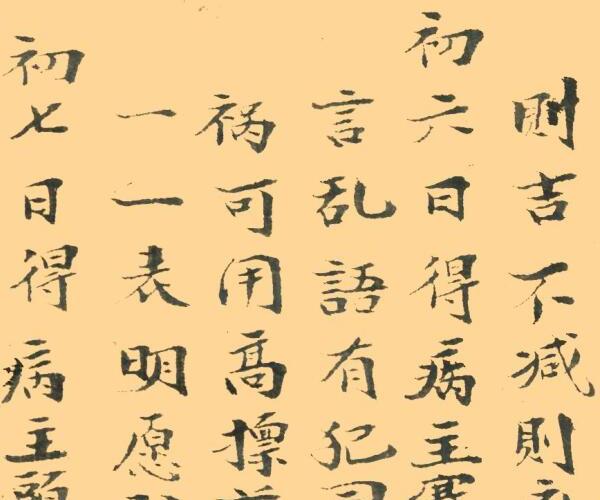 則吉不减則
初六日得病主寒
言乱語有犯司
祸可用高標
一一表明愿
初七日得病主頭